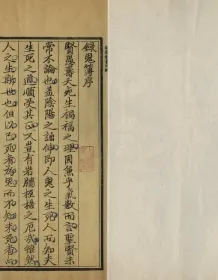 錄鬼簿序
賢愚壽夭死生禍福之理固兼乎氣數而言聖賢未
嘗不論也盖陰陽之詘伸即人鬼之生死人而知夫
生死之道順受其正又豈有岩牆桎梏之厄哉雖然
人之生斯世也但以已死者為鬼而不知未死者亦